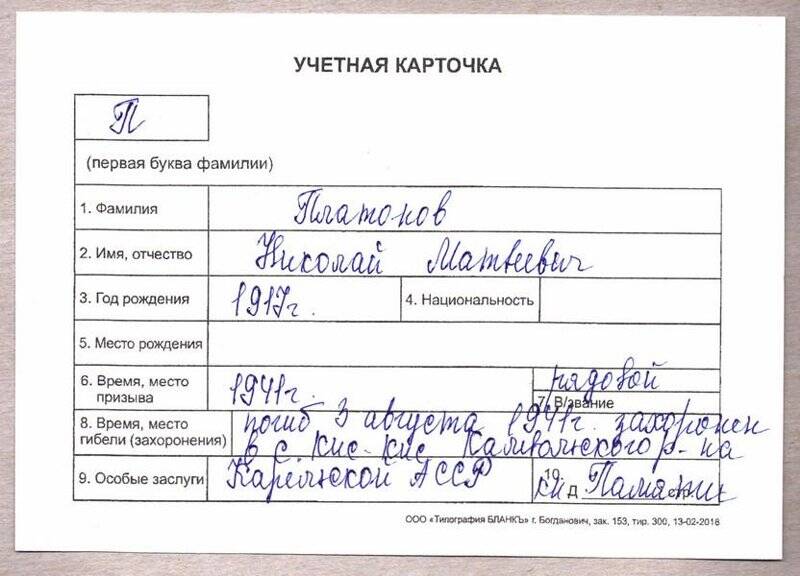 УЧЕТНАЯ КАРТОЧКА
П
(первая буква фамилии)
1. Фамилия Платонов
2. Имя, отчество Николай Матвеевич
3. Год рождения 1917г. 4. Национальность
5. Место рождения
6. Время, место призыва 1941г. рядовой
7. В/звание
8. Время, место погиб 3 августа 1941г. захоронен
гибели (захоронения) в с. Кис-кис р-на
9. Особые заслуги Карельской АССР 10. д Памяти
ООО «Типография БЛАНКЪ» г. Богданович, зак. 153, тир. 300, 13-02-2016